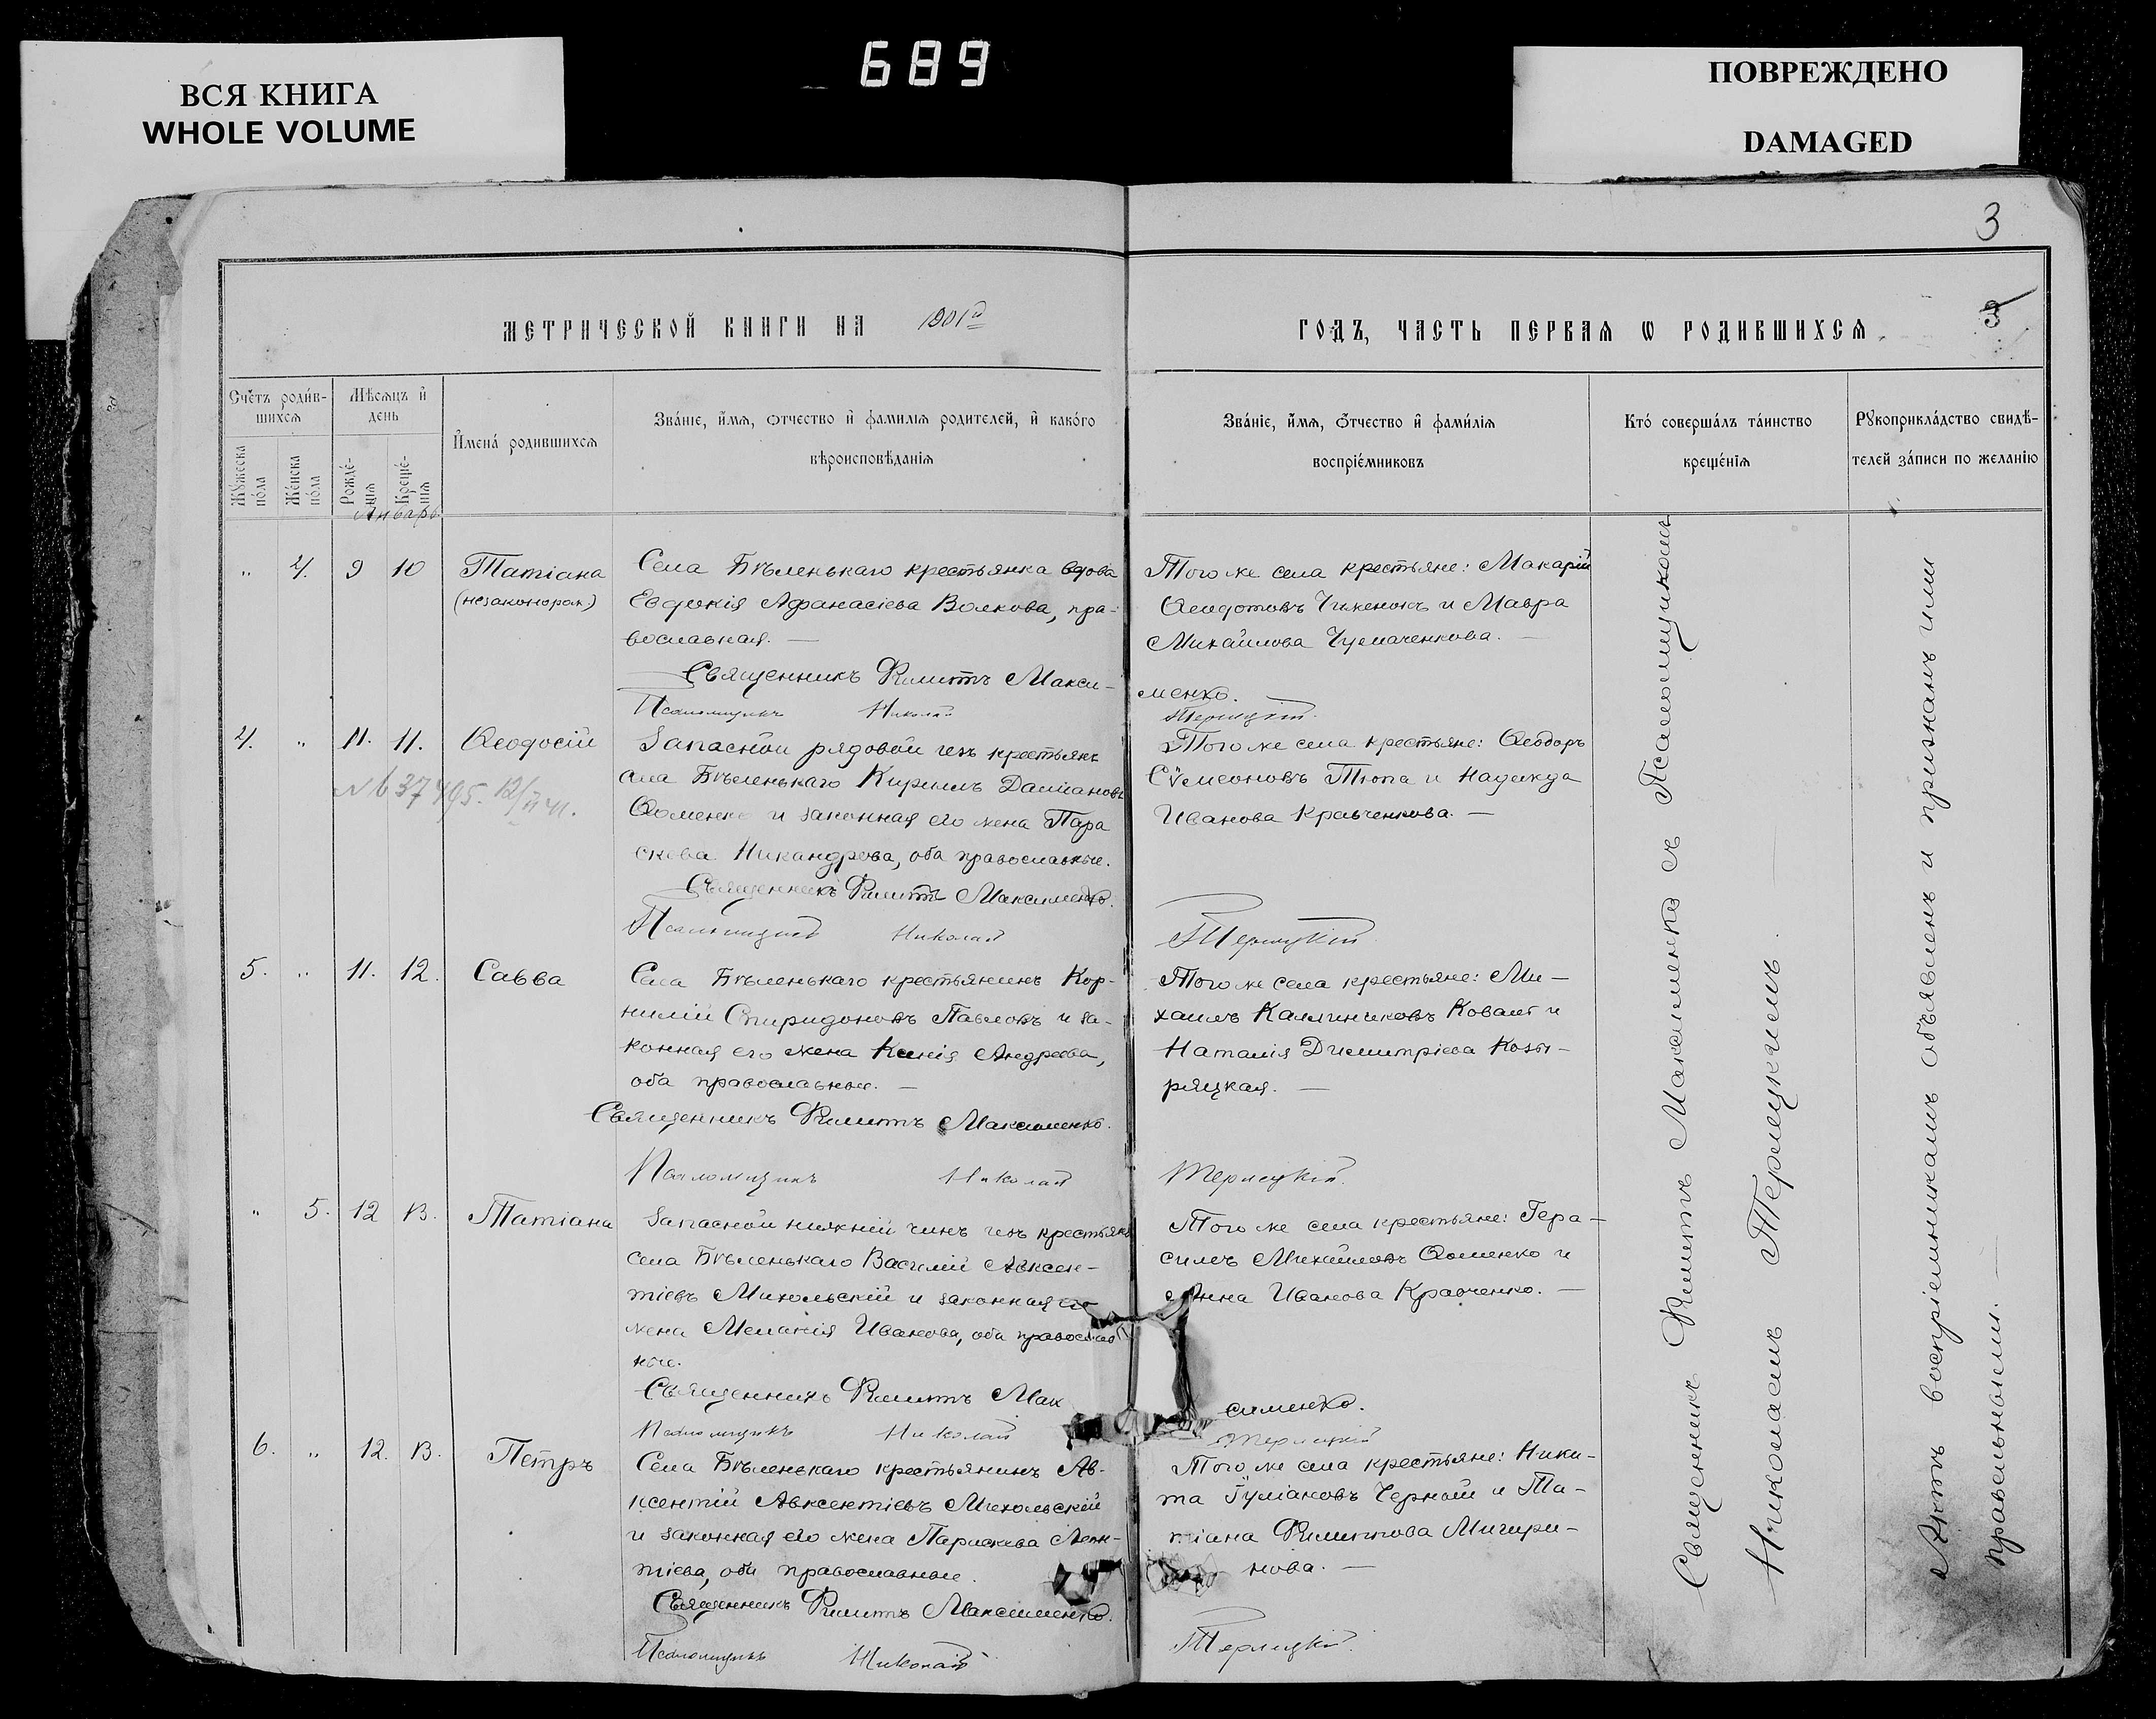 ВСЯ КНИГА
WHOLE VOLUME
689
ПОВРЕЖДЕНО
DAMAGED
3
МЕТРИЧЕСКОЙ КНИГИ НА 1901й
ГОДЪ, ЧАСТЬ ПЕРВАѦ Ѡ РОДИВШИХСѦ.
3
Счетъ родив-
шихсѧ
Мѣсѧцъ и
день
Мужеска
пола
Женска
пола
Рожде-
нїѧ
Креще-
нїѧ
Имена родившихсѧ
Званїе, имѧ, ѿчество и фамилїѧ родителей, и какого
вѣроисповѣданїѧ
Званїе, имѧ, ѿчество и фамилїѧ
воспрїемниковъ
Кто совершалъ таинство
крещенїѧ
Рꙋкоприкладство свидѣ-
телей записи по желанїю
Январь
" 4. 9 10 Татіана
(незаконорож)
Села Бѣленькаго крестьянка вдова
Евдокія Афанасіева Волкова, пра-
вославная. —
Священникъ Филиппъ Макси-
Псаломщикъ Николай
Того же села крестьяне: Макарій
Ѳеодотовъ Чиженокъ и Мавра
Михайлова Чумаченкова. —
менко.
Терлецкій.
4. " 11. 11. Ѳеодосій
№ 37495.
Запасной рядовой изъ крестьянъ
села Бѣленькаго Кириллъ Даміановъ
Ѳоменко и законная его жена Пара
скева Никандрова, оба православные.
Священникъ Филиппъ Максименко.
Псаломщикъ Николай
Того же села крестьяне: Ѳеодоръ
Сѵмеоновъ Тюпа и Надежда
Иванова Кравченкова. —
Терлецкій
5. " 11. 12. Савва
Села Бѣленькаго крестьянинъ Кор-
нилій Спиридоновъ Павловъ и за-
конная его жена Ксенія Андреева,
оба православные. —
Священникъ Филиппъ Максименко.
Псаломщикъ Николай
Того же села крестьяне: Ми-
хаилъ Каллиниковъ Ковалъ и
Наталія Димитріева Козы-
ряцкая. —
Терлецкій.
" 5. 12 13. Татіана
Запасной нижній чинъ изъ крестьянъ
села Бѣленькаго Василій Авксен-
тіевъ Михольскій и законная его
жена Меланія Иванова, оба православ
ные.
Священникъ Филиппъ Мак
Псаломщикъ Николай
Того же села крестьяне: Гера-
симъ Михайловъ Ѳоменко и
Анна Иванова Кравченко. —
сименко.
Терлецкій
6. " 12. 13. Петръ
Села Бѣленькаго крестьянинъ Ав-
ксентій Авксентіевъ Михольскій
и законная его жена Параскева Леон-
тіева, оба православные.
Священникъ Филиппъ Максименко.
Псаломщикъ Николай
Того же села крестьяне: Ники-
та Іуліановъ Черный и Та-
тіана Филиппова Мичири-
нова. —
Терлецкій.
Священникъ Филиппъ Максименко съ Псаломщикомъ
Николаемъ Терлецкимъ.
Актъ воспріемникамъ объявленъ и признанъ ими
правильнымъ. —